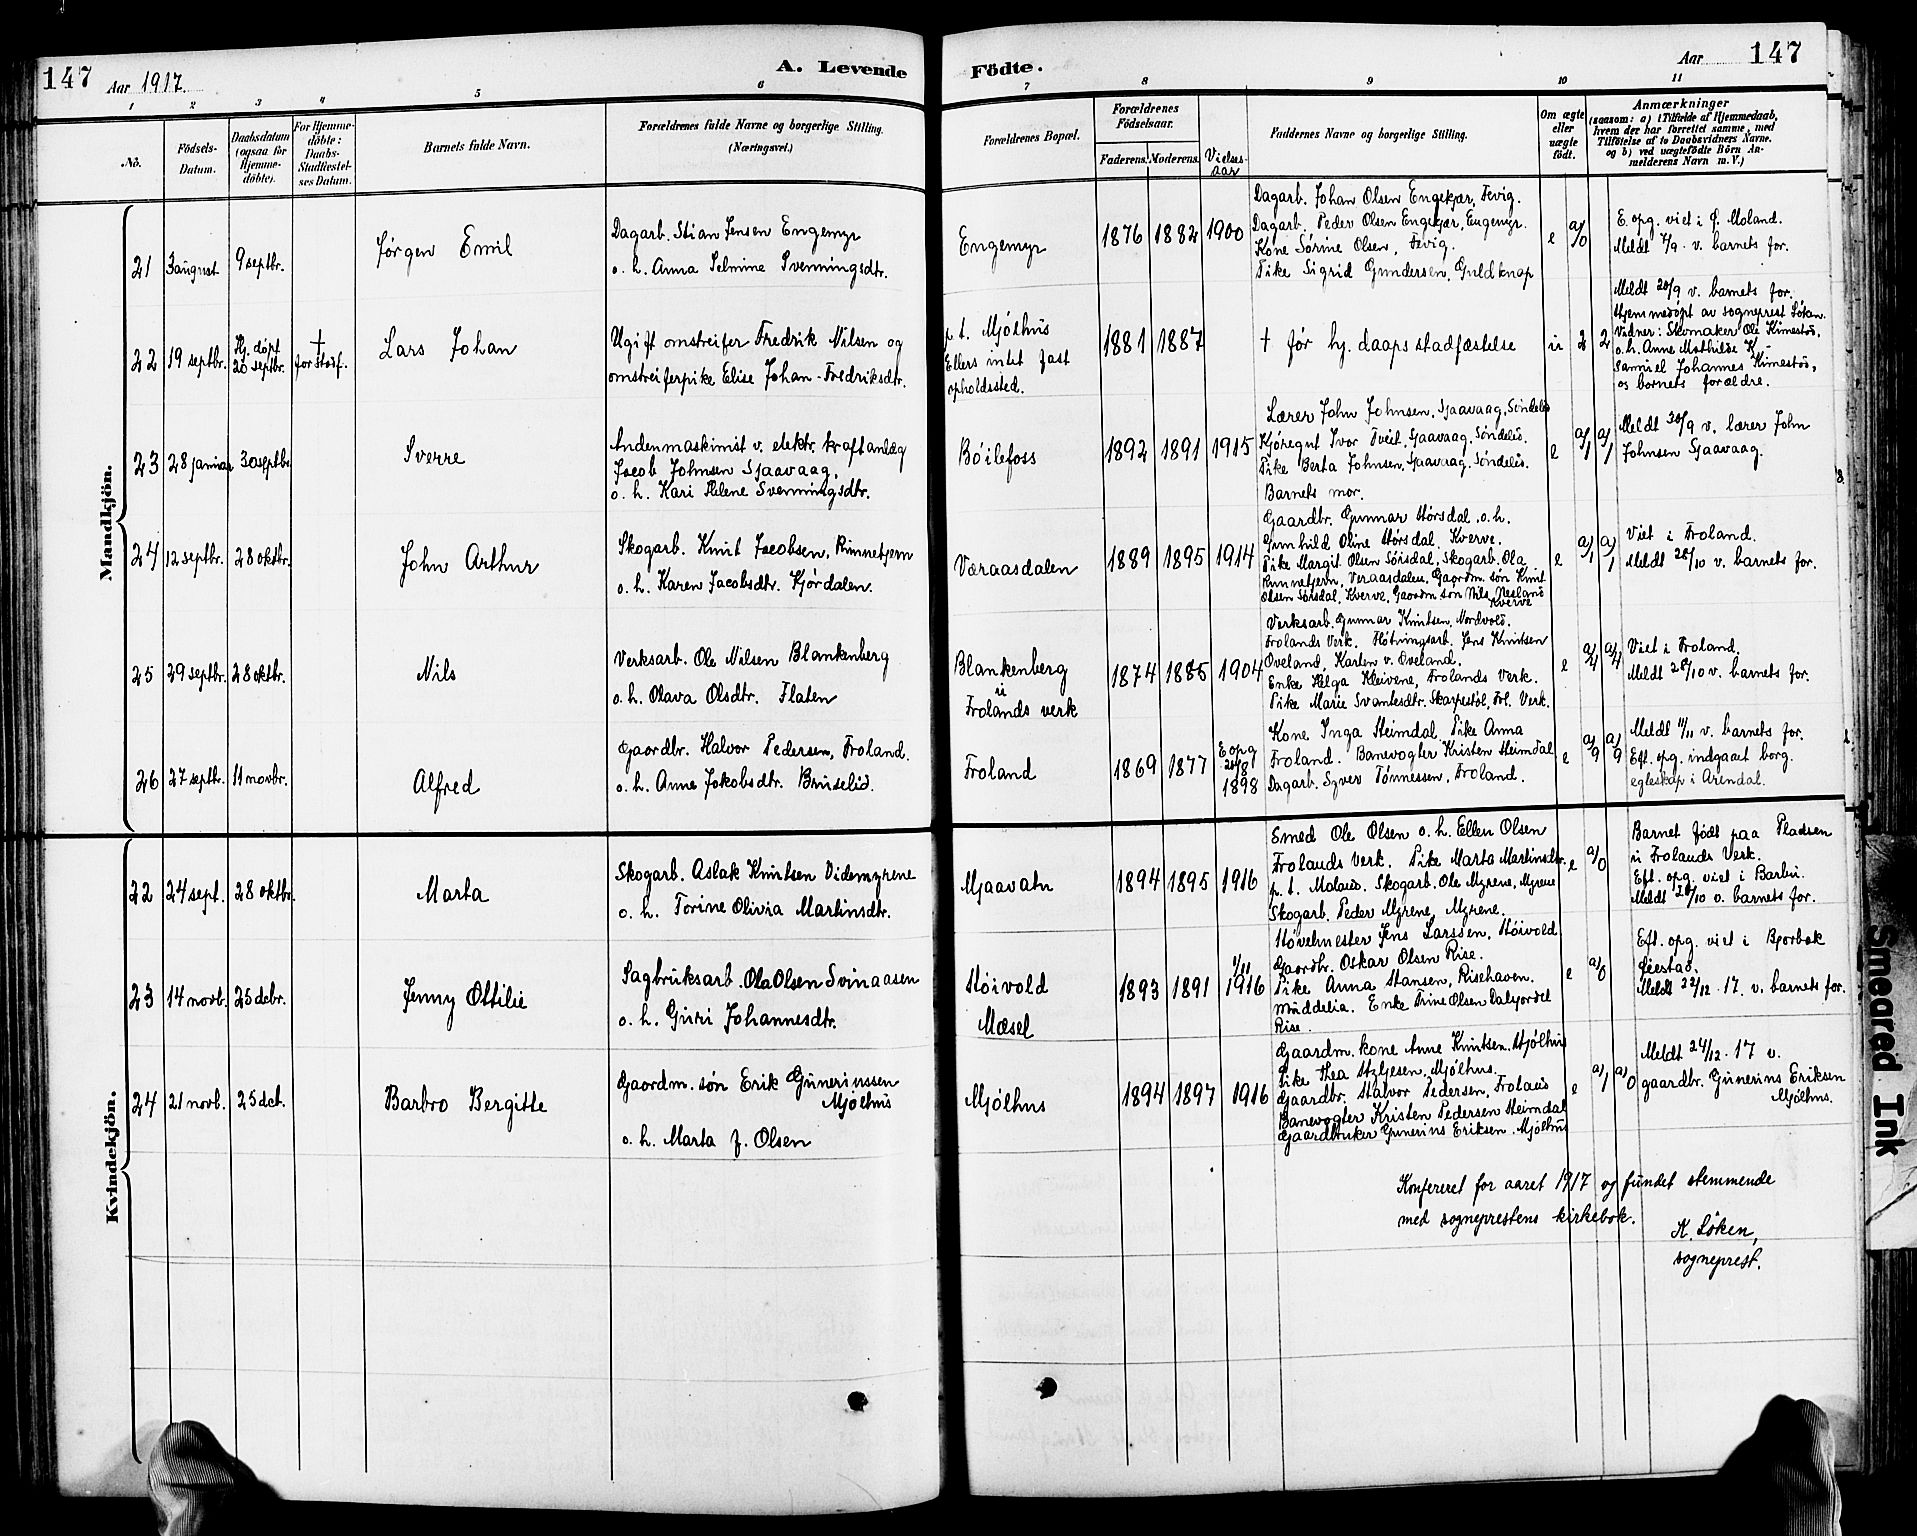 147
Aar 1917.
A. Levende
Födte.
Aar
147
1 2 3 4 5 6 7 8 9 10 11
No.
Födsels-
Datum.
Daabsdatum
(ogsaa for
Hjemme-
döbte).
For Hjemme-
döbte:
Daabs-
Stadfæstel-
ses Datum.
Barnets fulde Navn.
Forældrenes fulde Navne og borgerlige Stilling.
(Næringsvei.)
Forældrenes Bopæl.
Forældrenes
Födselsaar.
Faderens. Moderens.
Vielses-
aar
Faddernes Navne og borgerlige Stilling.
Om ægte
eller
uægte
födt.
Anmærkninger
(saasom: a) i Tilfælde af Hjemmedaab,
hvem der har forrettet samme, med
Tilföielse af to Daabsvidners Navne.
og b) ved uægtefödte Börn An-
melderens Navn m. V.)
Mandkjön.
21 3 august 9 septbr.
Jørgen Emil
Dagarb. Stian Jensen Engemyr
o. h. Anna Selmine Svenningsdtr.
Engemyr
1876 1882 1900
Dagarb. Johan Olsen Engekjær, Fevig.
Dagarb. Peder Olsen Engekjær, Engemyr.
Kone Sørine Olsen, Fevig.
Pike Sigrid Gundersen, Guldknap
e a/0
E. opg. viet i Ø. Moland.
Meldt 7/9. v. barnets far.
22 19 septbr.
Hj. døpt
20 septbr.
†
før stadf.
Lars Johan
Ugift omstreifer Fredrik Nilsen og
omstreiferpike Elise Johan-Fredriksdtr.
p. t. Mjølhus
Ellers intet fast
opholdssted.
1881 1887
† før hj. daaps stadfæstelse
u 2 2
Meldt 20/9 v. barnets far.
Hjemmedøpt av sogneprest Løken.
Vidner: Skomaker Ole Kimestøs,
o. h. Anne Mathilde K-
Samuel Johannes Kimestøs,
og barnets forældre.
23 28 januar 30 septbr
Sverre
Andenmaskinist v. elektr. kraftanlæg
Jacob Johnsen Sjaavaag,
o. h. Kari Helene Svenningsdtr.
Bøilefoss
1892 1891 1915
Lærer John Johnsen, Sjaavaag, Søndeled
Kjøregut Ivor Tveit, Sjaavaag, Søndeled.
Pike Berta Johnsen, Sjaavaag, Søndeled.
Barnets mor.
e a/1 a/1
Meldt 30/9 v. lærer John
Johnsen Sjaavaag.
24 12 septbr. 28 oktbr.
John Arthur
Skogarb. Knut Jacobsen, Rinnetjern
o. h. Karen Jacobsdtr. Kjørdalen.
Væraasdalen
1889 1895 1914
Gaardbr. Gunnar Hørsdal. o. h.
Gunhild Oline Hørsdal, Kverve.
Pike Margit Olsen Sørsdal, Skogarb. Ola
Rinnetjern, Veraasdalen, Gaardm. søn Knut
Olsen Sørsdal, Kverve, Gaardm søn Nils Nesland
Kverve
e a/1 a/1
Viet i Froland.
Meldt 28/10 v. barnets far.
25 29 septbr. 28 oktbr.
Nils
Verksarb. Ole Nilsen Blankenberg
o. h. Olava Olsdtr. Flaten
Blankenberg
u
Frolands verk
1874 1885 1904
Verksarb. Gunnar Knutsen, Nordvold.
Frolands Verk. Høtningsarb. Jens Knutsen
Oveland, Karten v. Oveland.
Enke Helga Kleivene, Frolands Verk.
Pike Marie Svantesdtr. Skarpestøl, Frl. Verk.
e a/4 a/4
Viet i Froland.
Meldt 28/10 v. barnets far.
26 27 septbr. 11 novbr.
Alfred
Gaardbr. Halvor Pedersen, Froland.
o. h. Anne Jakobsdtr. Bruselid.
Froland
1869 1877
E opg
1898
Kone Inga Heimdal, Pike Anna
Froland. Banevogter Kristen Heimdal
Dagarb. Syver Tønnessen, Froland.
e a/9 a/9
Meldt 11/11 v. barnets far.
Eft. opg. indgaaet borg.
egteskap i Arendal.
Kvindekjön.
22 24 sept. 28 oktbr.
Marta
Skogarb. Aslak Knutsen Videmyrene
o. h. Torine Olivia Martinsdtr.
Mjaavatn
1894 1895 1916
Smed Ole Olsen o. h. Ellen Olsen
Frolands Verk. Pike Marta Martinsdtr.
p. t. Moland. Skogarb. Ole Myrene, Myrene
Skogarb. Peder Myrene, Myrene.
e a/0
Barnet født paa Pladsen
u Frolands Verk.
Eft. opg. viet i Barbu.
Meldt 28/10 v. barnets far.
23 14 novb. 25 dcbr.
Jenny Ottilie
Sagbruksarb. Ola Olsen Svinaasen
o. h. Guri Johannesdtr.
Høivold
Mæsel
1893 1891
1/11
1916
Høvelmester Jens Larssen, Høivold
Gaardbr. Oskar Olsen Rise.
Pike Anna Hansen, Risehaven.
Muddelia. Enke Trine Olsen Daljordet
Rise.
e a/0
Eft. opg. viet i Bjorbæk
Øiestad.
Meldt 22/12. 17. v. barnets far.
24 21 novb. 25 dct.
Barbro Bergitte
Gaardm. søn Erik Gunerinssen
Mjølhus
o. h. Marta J. Olsen
Mjølhus
1894 1897 1916
Gaardm. kone Anne Knutsen. Mjølhus
Pike Thea Stylesen, Mjølhus.
Gaardbr. Halvor Pedersen, Froland
Banevogter Kristen Pedersen Heimdal
Gaardbruker Gunerius Eriksen. Mjølhus
e a/1 a/0
Meldt 24/12. 17 v.
gaardbr. Gunerius Eriksen
Mjølhus.
Konfereret for aaret 1917 og fundet stemmende
med sogneprestens kirkebok.
K. Løken,
sogneprest.
Smeared Ink